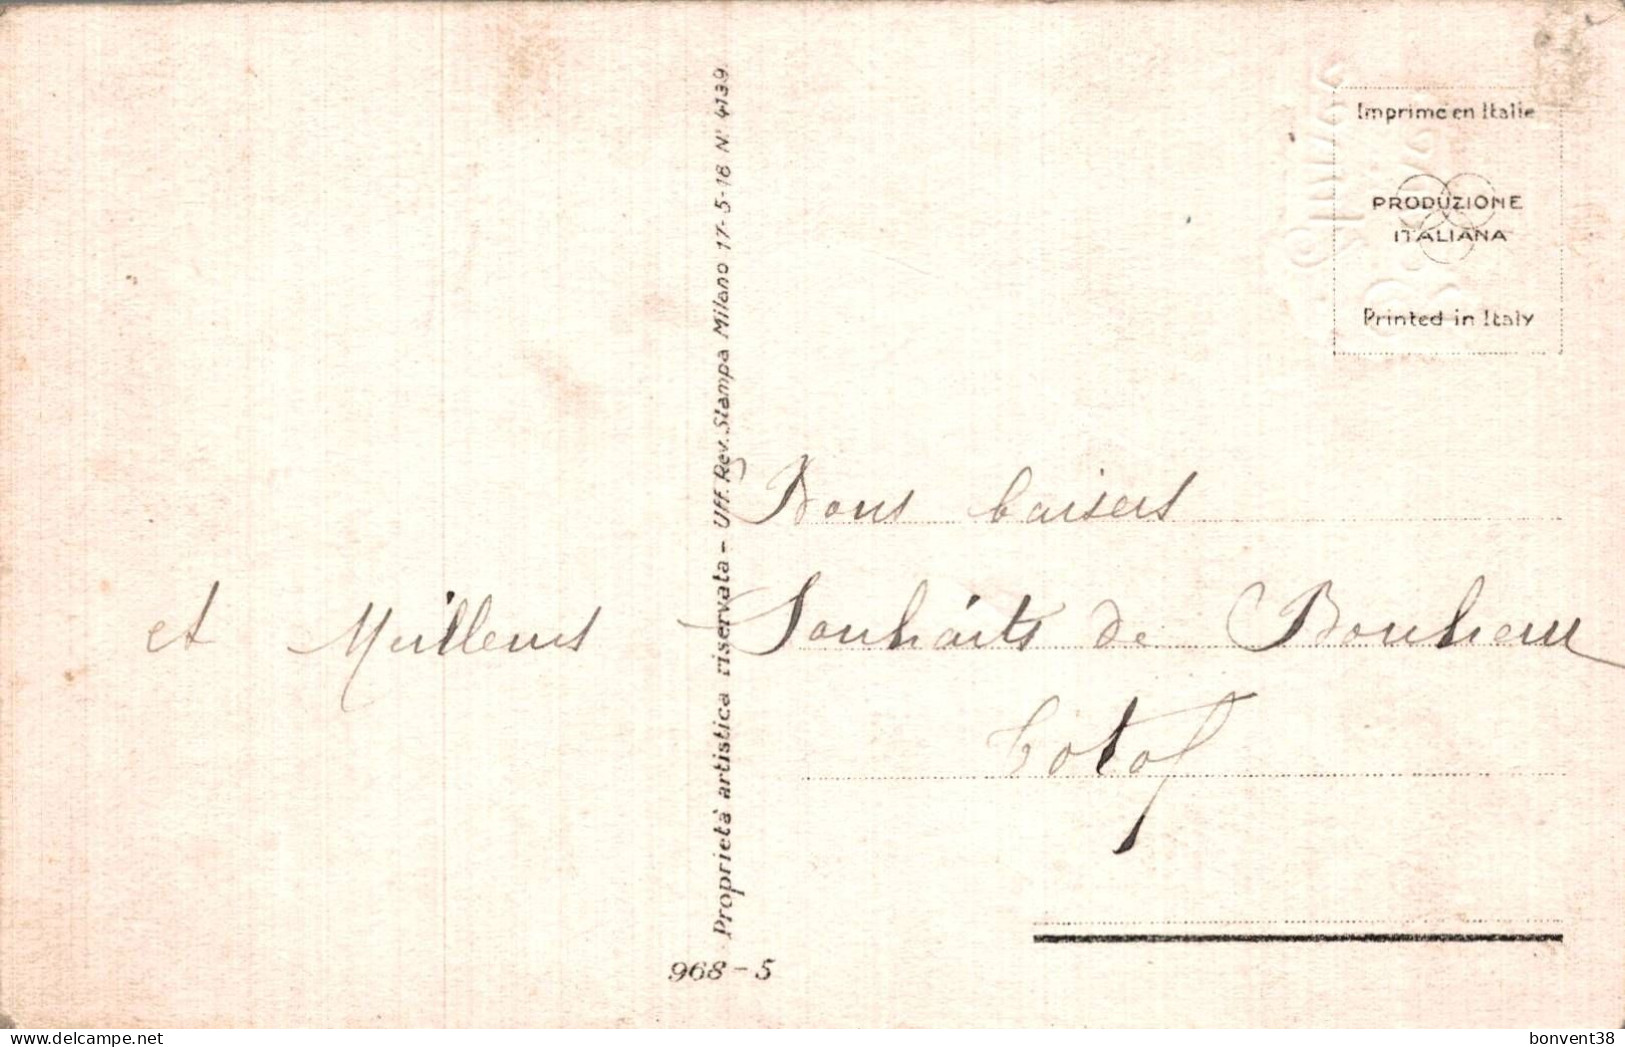 Imprimé en Italie
PRODUZIONE
ITALIANA
Printed in Italy
Proprietà artistica riservata - Uff. Rev. Stampa Milano 17-5-18 N° 4139
Bons baisers
et Meilleurs Souhaits de Bonheur
968-5
bonvent38